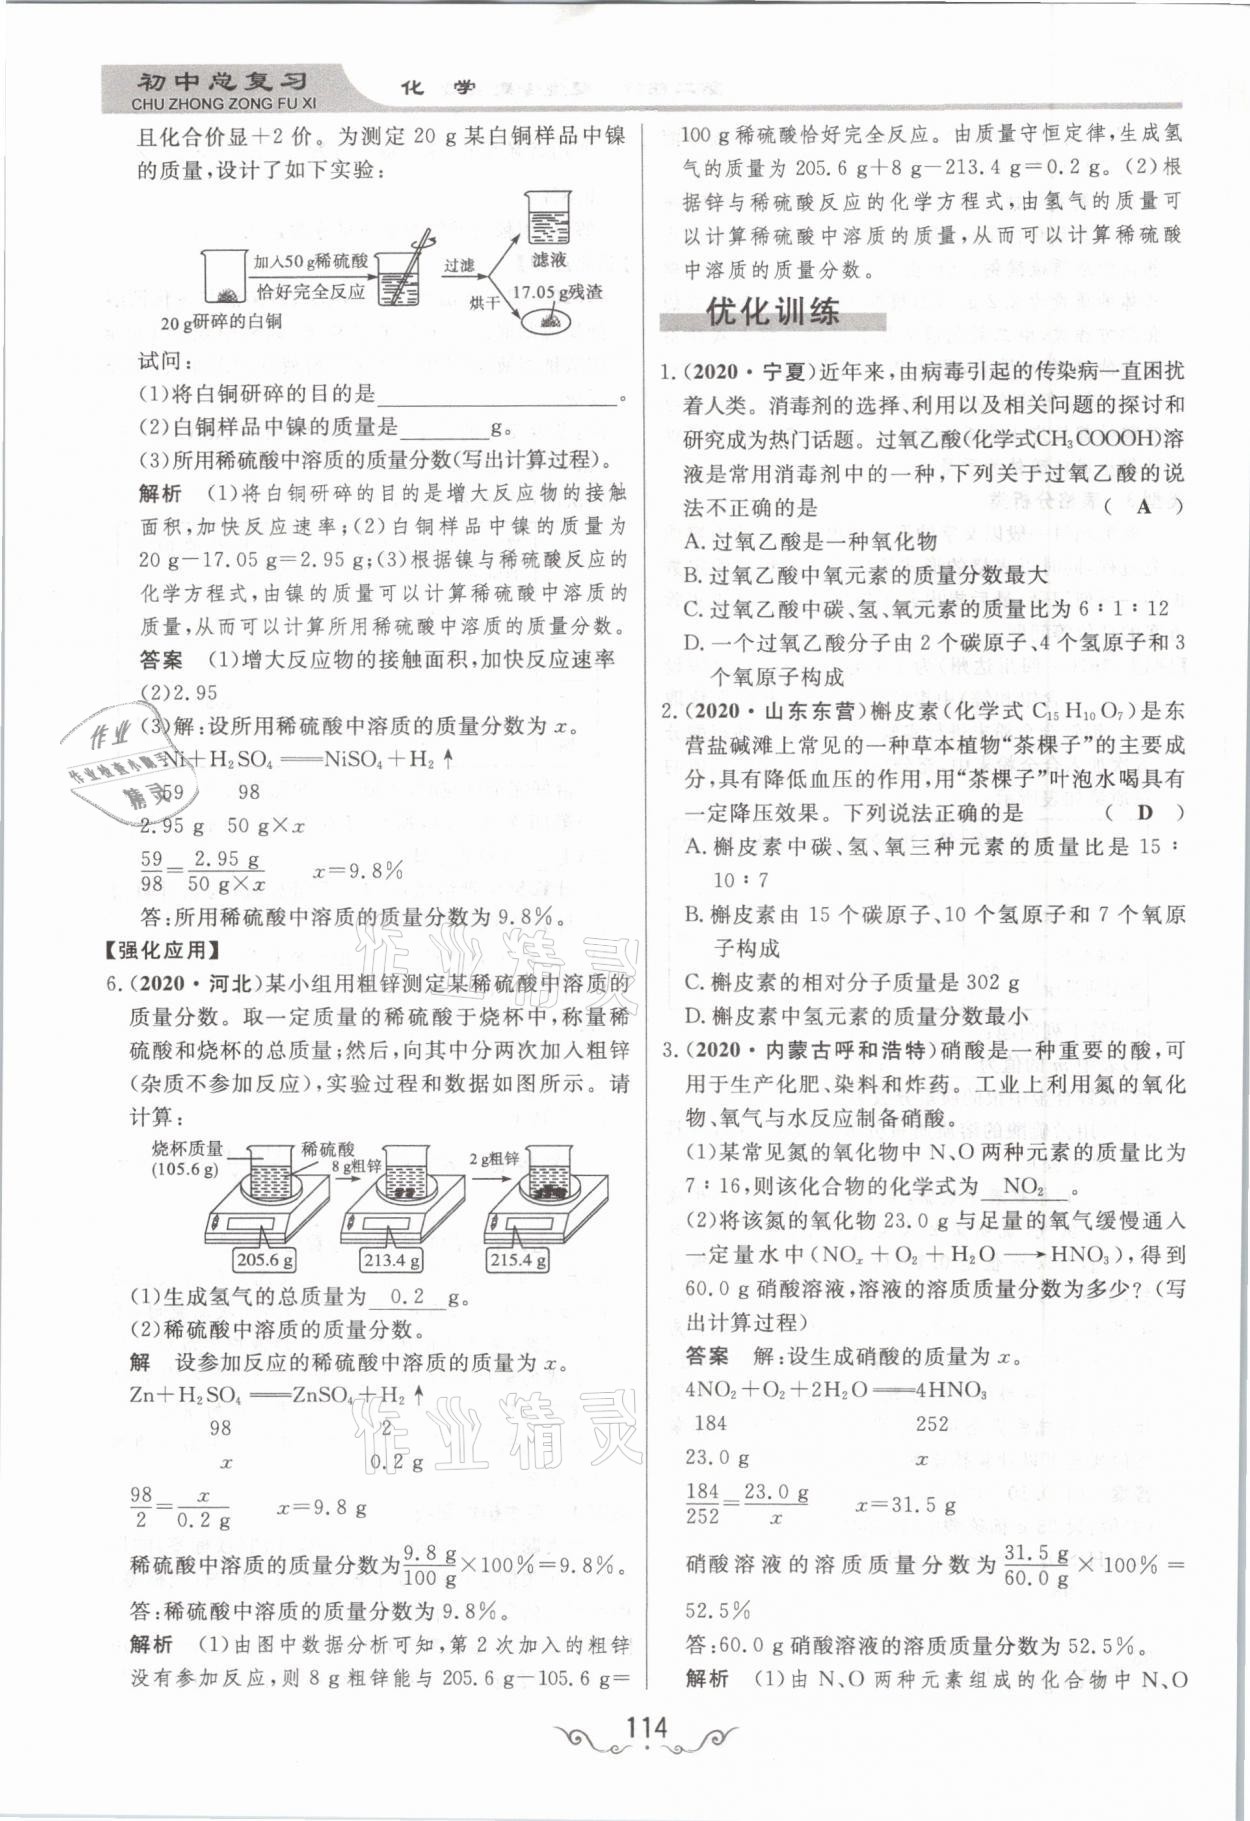 初中总复习
CHU ZHONG ZONG FU XI
化 学
且化合价显＋2 价。为测定 20 g 某白铜样品中镍
的质量,设计了如下实验:
加入50 g稀硫酸
恰好完全反应
过滤
烘干
滤液
17.05 g残渣
20 g研碎的白铜
试问:
(1)将白铜研碎的目的是____________。
(2)白铜样品中镍的质量是________g。
(3)所用稀硫酸中溶质的质量分数(写出计算过程)。
解析 (1)将白铜研碎的目的是增大反应物的接触
面积,加快反应速率;(2)白铜样品中镍的质量为
20 g－17.05 g＝2.95 g;(3)根据镍与稀硫酸反应的
化学方程式,由镍的质量可以计算稀硫酸中溶质的
质量,从而可以计算所用稀硫酸中溶质的质量分数。
答案 (1)增大反应物的接触面积,加快反应速率
(2)2.95
(3)解:设所用稀硫酸中溶质的质量分数为 x。
Ni＋H₂SO₄══NiSO₄＋H₂↑
59 98
2.95 g 50 g×x
59/98＝2.95 g/50 g×x x＝9.8%
答:所用稀硫酸中溶质的质量分数为 9.8%。
【强化应用】
6.(2020·河北)某小组用粗锌测定某稀硫酸中溶质的
质量分数。取一定质量的稀硫酸于烧杯中,称量稀
硫酸和烧杯的总质量;然后,向其中分两次加入粗锌
(杂质不参加反应),实验过程和数据如图所示。请
计算:
烧杯质量
(105.6 g)
稀硫酸
8 g粗锌
2 g粗锌
205.6 g
213.4 g
215.4 g
(1)生成氢气的总质量为 0.2 g。
(2)稀硫酸中溶质的质量分数。
解 设参加反应的稀硫酸中溶质的质量为 x。
Zn＋H₂SO₄══ZnSO₄＋H₂↑
98 2
x 0.2 g
98/2＝x/0.2 g x＝9.8 g
稀硫酸中溶质的质量分数为9.8 g/100 g×100%＝9.8%。
答:稀硫酸中溶质的质量分数为 9.8%。
解析 (1)由图中数据分析可知,第 2 次加入的粗锌
没有参加反应,则 8 g 粗锌能与 205.6 g－105.6 g＝
100 g 稀硫酸恰好完全反应。由质量守恒定律,生成氢
气的质量为 205.6 g＋8 g－213.4 g＝0.2 g。(2)根
据锌与稀硫酸反应的化学方程式,由氢气的质量可
以计算稀硫酸中溶质的质量,从而可以计算稀硫酸
中溶质的质量分数。
优化训练
1.(2020·宁夏)近年来,由病毒引起的传染病一直困扰
着人类。消毒剂的选择、利用以及相关问题的探讨和
研究成为热门话题。过氧乙酸(化学式CH₃COOOH)溶
液是常用消毒剂中的一种,下列关于过氧乙酸的说
法不正确的是 ( A )
A.过氧乙酸是一种氧化物
B.过氧乙酸中氧元素的质量分数最大
C.过氧乙酸中碳、氢、氧元素的质量比为 6∶1∶12
D.一个过氧乙酸分子由 2 个碳原子、4 个氢原子和 3
个氧原子构成
2.(2020·山东东营)槲皮素(化学式 C₁₅H₁₀O₇)是东
营盐碱滩上常见的一种草本植物“茶棵子”的主要成
分,具有降低血压的作用,用“茶棵子”叶泡水喝具有
一定降压效果。下列说法正确的是 ( D )
A.槲皮素中碳、氢、氧三种元素的质量比是 15∶
10∶7
B.槲皮素由 15 个碳原子、10 个氢原子和 7 个氧原
子构成
C.槲皮素的相对分子质量是 302 g
D.槲皮素中氢元素的质量分数最小
3.(2020·内蒙古呼和浩特)硝酸是一种重要的酸,可
用于生产化肥、染料和炸药。工业上利用氮的氧化
物、氧气与水反应制备硝酸。
(1)某常见氮的氧化物中 N、O 两种元素的质量比为
7∶16,则该化合物的化学式为 NO₂ 。
(2)将该氮的氧化物 23.0 g 与足量的氧气缓慢通入
一定量水中(NOₓ＋O₂＋H₂O⟶HNO₃),得到
60.0 g 硝酸溶液,溶液的溶质质量分数为多少? (写
出计算过程)
答案 解:设生成硝酸的质量为 x。
4NO₂＋O₂＋2H₂O══4HNO₃
184 252
23.0 g x
184/252＝23.0 g/x x＝31.5 g
硝酸溶液的溶质质量分数为31.5 g/60.0 g×100%＝
52.5%
答:60.0 g 硝酸溶液的溶质质量分数为 52.5%。
解析 (1)由 N、O 两种元素组成的化合物中 N、O
114
作业
作业检查小助手
精灵
作业精灵
作业精灵